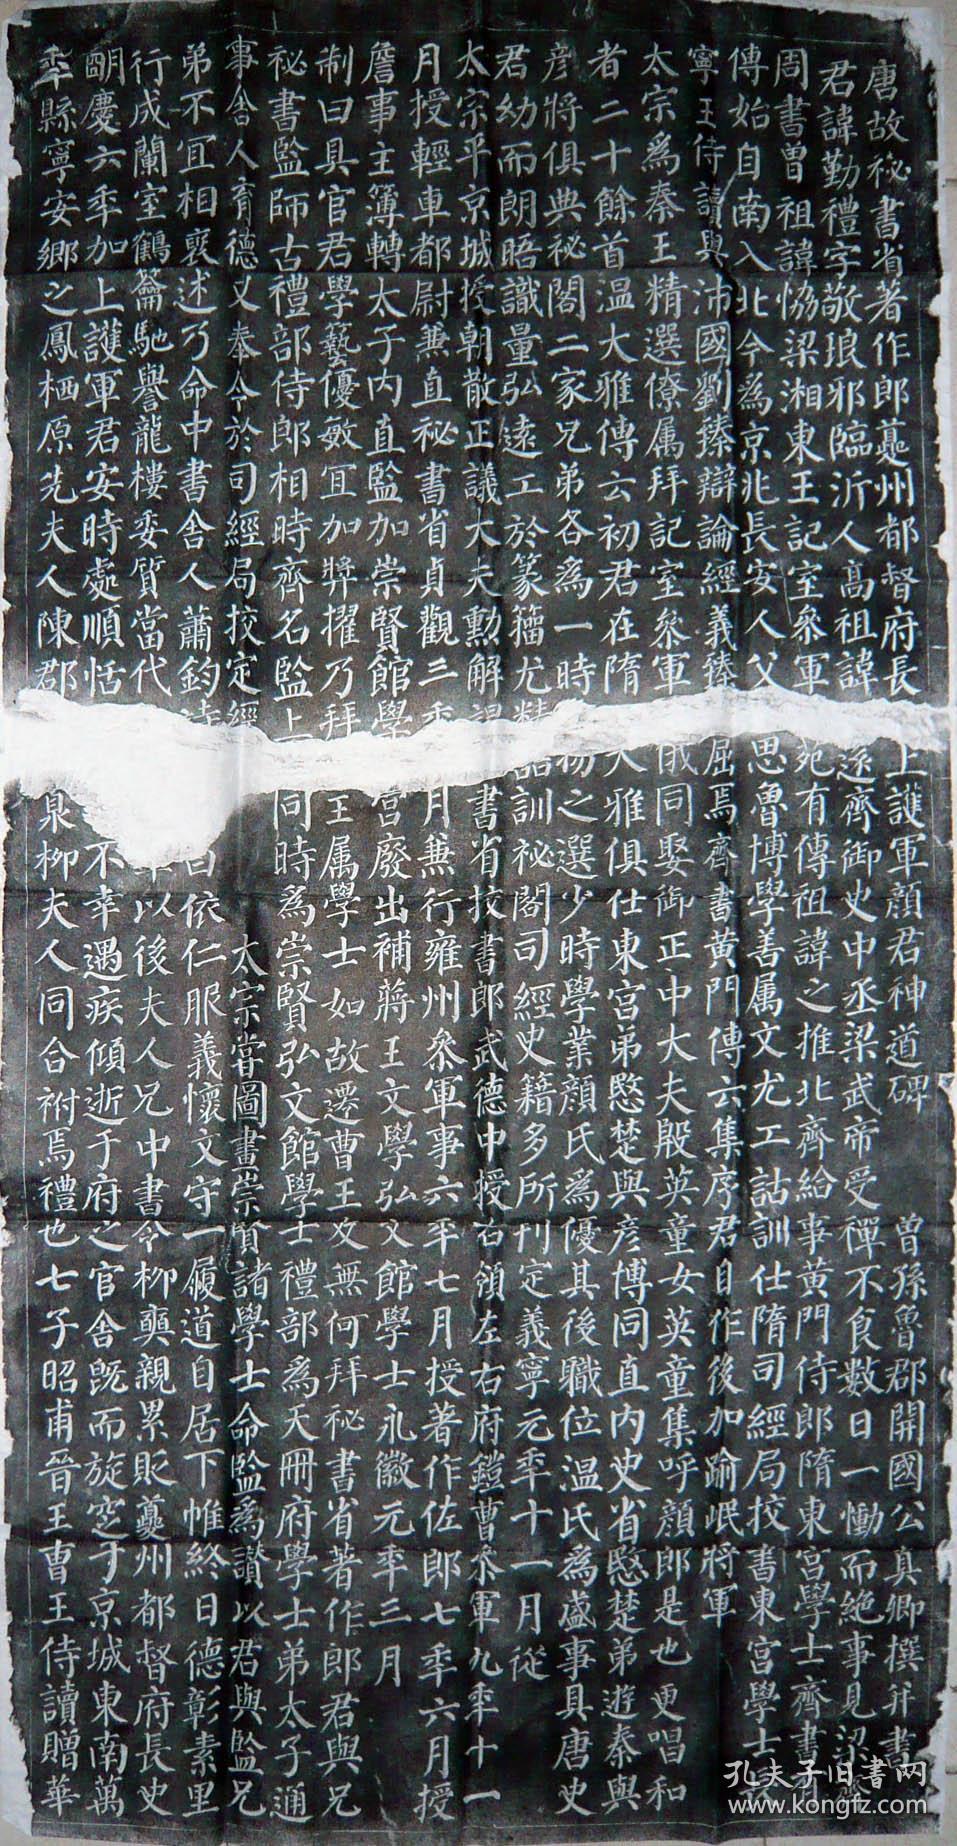 唐故祕書省著作郎夔州都督府長上護軍顏君神道碑 曾孫魯郡開國公真卿撰并書
君諱勤禮字敬琅邪臨沂人高祖諱遠齊御史中丞梁武帝受禪不食數日一慟而絕事見梁
周書曾祖諱恊梁湘東王記室叅軍苑有傳祖諱之推北齊給事黃門侍郎隋東宮學士齊書
傳始自南入北今為京兆長安人父思魯博學善屬文尤工詁訓仕隋司經局挍書東宮學士
寧王侍讀與沛國劉臻辯論經義臻屈焉齊書黃門傳云集序君自作後加踰岷將軍
太宗為秦王精選僚屬拜記室叅軍同娶御正中大夫殷英童女英童集呼顏郎是也更唱和
者二十餘首溫大雅傳云初君在隋大雅俱仕東宮弟愍楚與彥博同直內史省愍楚弟遊秦與
彥將俱典祕閣二家兄弟各為一時之選少時學業顏氏為優其後職位溫氏為盛事具唐史
君幼而朗晤識量弘遠工於篆籀尤精詁訓祕閣司經史籍多所刊定義寧元年十一月從
太宗平京城授朝散正議大夫勳解書省挍書郎武德中授右領左右府鎧曹叅軍九年十一
月授輕車都尉兼直祕書省貞觀三年月兼行雍州叅軍事六年七月授著作佐郎七年六月授
詹事主簿轉太子內直監加崇賢館學宮廢出補蔣王文學弘文館學士永徽元年三月
制曰具官君學藝優敏宜加獎擢乃拜王屬學士如故遷曹王友無何拜祕書省著作郎君與兄
祕書監師古禮部侍郎相時齊名監上同時為崇賢弘文館學士禮部為天冊府學士弟太子通
事舍人育德又奉令於司經局挍定經太宗嘗圖畫崇賢諸學士命監為讚以君與監兄
弟不宜相襃述乃命中書舍人蕭鈞曰依仁服義懷文守一履道自居下帷終日德彰素里
行成蘭室鶴籥馳譽龍樓委質當代以後夫人兄中書令柳奭親累貶夔州都督府長史
眀慶六年加上護軍君安時處順恬不幸遇疾傾逝于府之官舍既而旋窆于京城東南萬
年縣寧安鄉之鳳栖原先夫人陳郡泉柳夫人同合祔焉禮也七子昭甫晉王曹王侍讀贈華
孔夫子旧書网
www.kongfz.com